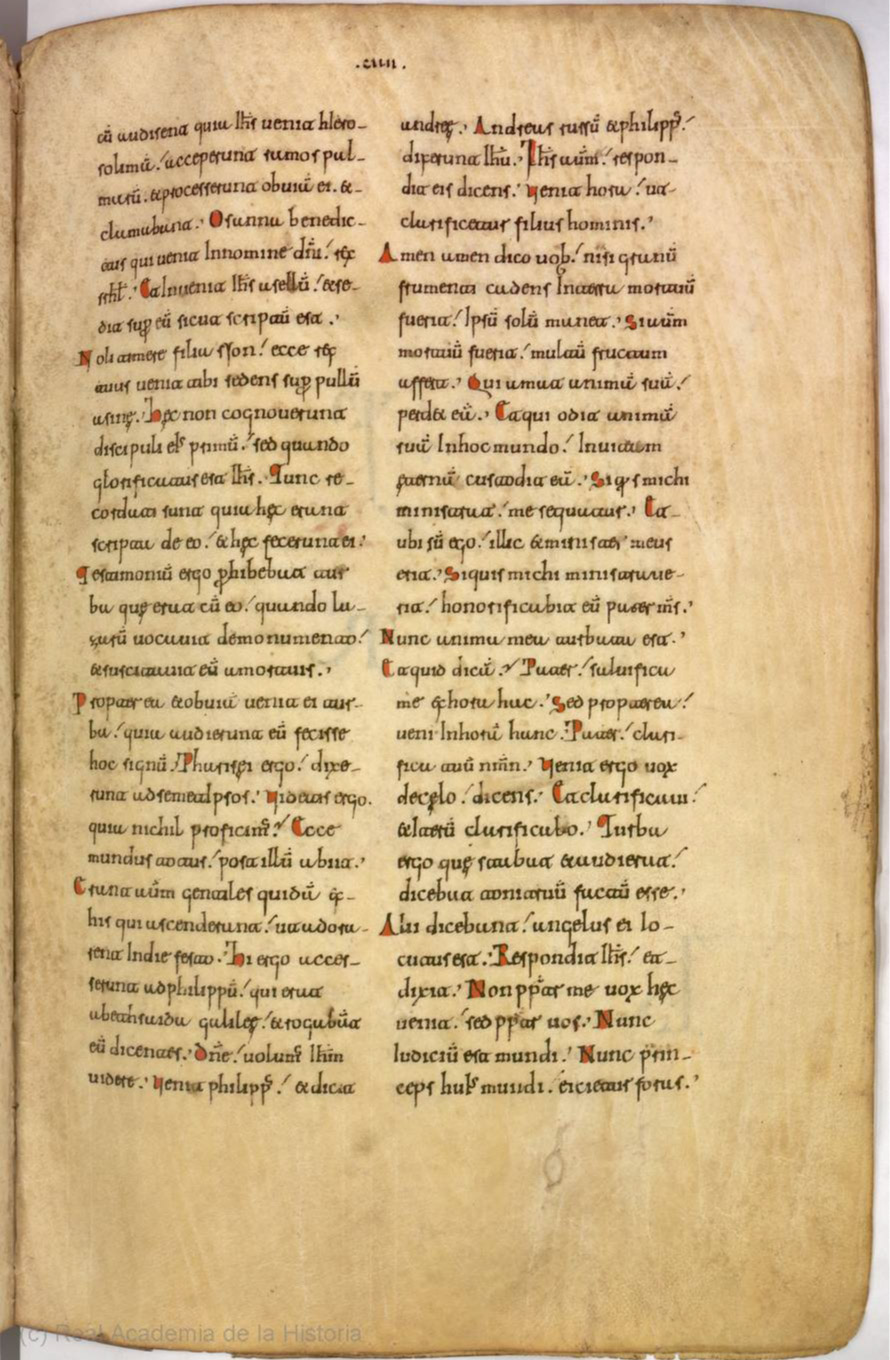 .ciiii.
cū audisent quia ihs̄ uenit hiero-
solimā. acceperunt ramos pal-
marū. & processerunt obuiā ei. & -
clamabant. Osanna benedic-
tus qui uenit In nomine dn̄i. rex
srhl̄. Et Inuenit ihs̄ asellū. & se-
dit sup̱ eū sicut scriptū est.
Noli timere filia sion. ecce rex
tuus uenit tibi sedens sup̱ pullū
asinę. Hęc non cognouerunt
discipuli eis̄ primū. sed quando
glorificatus est ihs̄. Tunc re-
cordati sunt quia hęc erant
scripta de eo. & hęc fecerunt ei.
Testimoniū ergo p̱hibebat tur
ba quę erat cū eo. quando la-
zarū uocauit de monumento.
& suscitauit eū a mortuis.
Propterea & obuiā uenit ei tur-
ba. quia audierunt eū fecisse
hoc signū. Pharisęi ergo. dixe-
runt ad semetipsos. Videtis ergo.
quia nichil proficim̄. Ecce
mundus totus. post illū abiit.
Erant aūm gentiles quidā ex
his qui ascenderunt. ut adora-
rent In die festo. Hi ergo acces-
serunt ad philippū. qui erat
a bethsaida galileę. & rogabāt
eū dicentes. Dn̄e. uolum̄ ihm̄
uidere. Venit philipp̄. & dicit
andreę. Andreas rursū & philipp̄.
dixerunt ihū. Ihs̄ aūm. respon-
dit eis dicens. Venit hora. ut
clarificetur filius hominis.
Amen amen dico uob̄. nisi granū
frumenti cadens In terra mortuū
fuerit. Ipsū solū manet. Si aūm
mortuū fuerit. multū fructum
affert. Qui amat animā suā.
perdet eū. Et qui odit animā
suā In hoc mundo. In uitam
ęternā custodit eū. Si q̱s michi
ministrat. me sequatur. Et
ubi sū ego. illic & minister meus
erit. Si quis michi ministraue-
rit. honorificabit eū pater ms̄.
Nunc anima mea turbata est.
Et quid dicā. Pater. saluifica
me ex hora hac. Sed propterea.
ueni In horā hanc. Pater. clari-
fica tuū nm̄n. Venit ergo uox
de cęlo. dicens. Et clarificaui.
& iterū clarificabo. Turba
ergo quę stabat & audierat.
dicebat tonitruū factū esse.
Alii dicebant. angelus ei lo-
cutus est. Respondit ihs̄. et
dixit. Non pp̄ter me uox hęc
uenit. sed pp̄ter uos. Nunc
Iudiciū est mundi. Nunc prin-
ceps huis̄ mundi. eicietur foras.
(c) Real Academia de la Historia